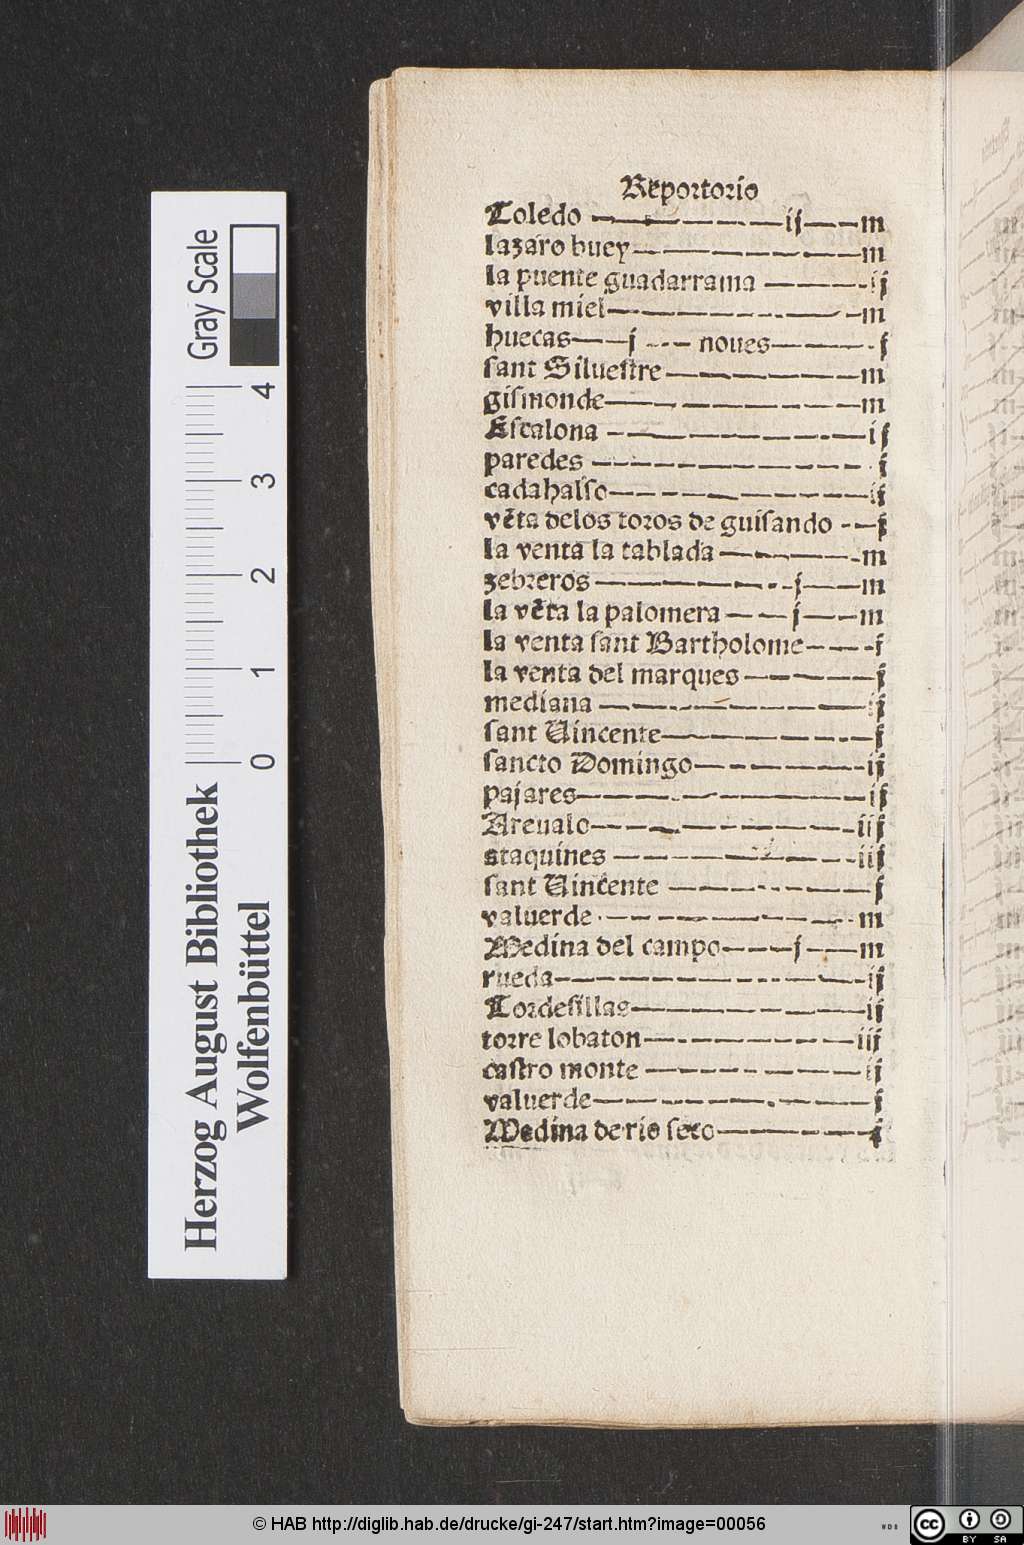 Reportorio
Toledo — — — — — ij — — m
lazaro buey — — — — — — m
la puente guadarrama — — — ij
villa miel — — — — — — m
huecas — — j — — noues — — — j
sant Siluestre — — — — — — m
gismonde — — — — — — m
Escalona — — — — — — ij
paredes — — — — — — j
cadahalso — — — — — — ij
vẽta delos toros de guisando — — j
la venta la tablada — — — — m
zebreros — — — — j — — m
la vẽta la palomera — — j — — m
la venta sant Bartholome — — — j
la venta del marques — — — — j
mediana — — — — — — ij
sant Uincente — — — — — — j
sancto Domingo — — — — — ij
pajares — — — — — — ij
Areualo — — — — — — iij
ataquines — — — — — — iij
sant Uincente — — — — — — j
valuerde — — — — — — m
Medina del campo — — — j — — m
rueda — — — — — — ij
Tordesillas — — — — — — ij
torre lobaton — — — — — iij
castro monte — — — — — ij
valuerde — — — — — — j
Medina de rio seco — — — —
Gray Scale
4 3 2 1 0
Herzog August Bibliothek
Wolfenbüttel
© HAB http://diglib.hab.de/drucke/gi-247/start.htm?image=00056
WDB
cc BY SA